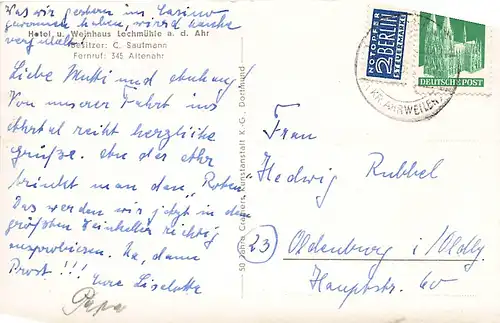 Was wir gestern im Casino
gewonnen haben, wird heute
Hotel u. Weinhaus Lochmühle a. d. Ahr
Besitzer: C. Saufmann
Fernruf: 345 Altenahr
Liebe Mutti und
Von unserer Fahrt ins
Ahrtal recht herzliche
Grüße. An der Ahr
trinkt man den „Roten.
Das werden wir jetzt in dem
größten Weinkeller richtig
ausprobieren. Na, dann
Prost!!! Eure Liselotte
Papa
50 Jahre Cramers Kunstanstalt K.-G. Dortmund
NOTOPFER
2 BERLIN
STEUERMARKE
DEUTSCHE POST
KR. AHRWEILER
Frau
Hedwig Rubbel
23) Oldenburg i/Oldbg.
Hauptstr. 60